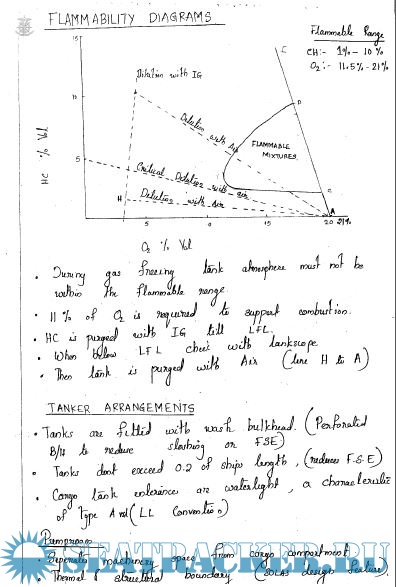 FLAMMABILITY DIAGRAMS
Flammable Range
CH:- 1% - 10%
O2:- 11.5% - 21%
15
10
5
HC % Vol
Dilution with IG
Dilution with Air
FLAMMABLE
MIXTURES
Critical Dilution with air
H Dilution with Air
C
D
C
A
5 10 15 20 21%
O2 % Vol
• During gas freeing tank atmosphere must not be
within the flammable range.
• 11% of O2 is required to support combustion.
• HC is purged with IG till LFL.
• When below LFL check with tankscope
• Then tank is purged with Air (line H to A)
TANKER ARRANGEMENTS
• Tanks are fitted with wash bulkhead. (Perforated
B/H to reduce sloshing or FSE)
• Tanks dont exceed 0.2 of ships length, (reduces F.S.E)
• Cargo tank enterance are watertight, a characteristic
of Type A vsl (LL Convention)
Pumproom
• Seperate machinery space from cargo compartment
• Thermal & structural boundary (SOLAS design feature).
SEATRACKER.RU